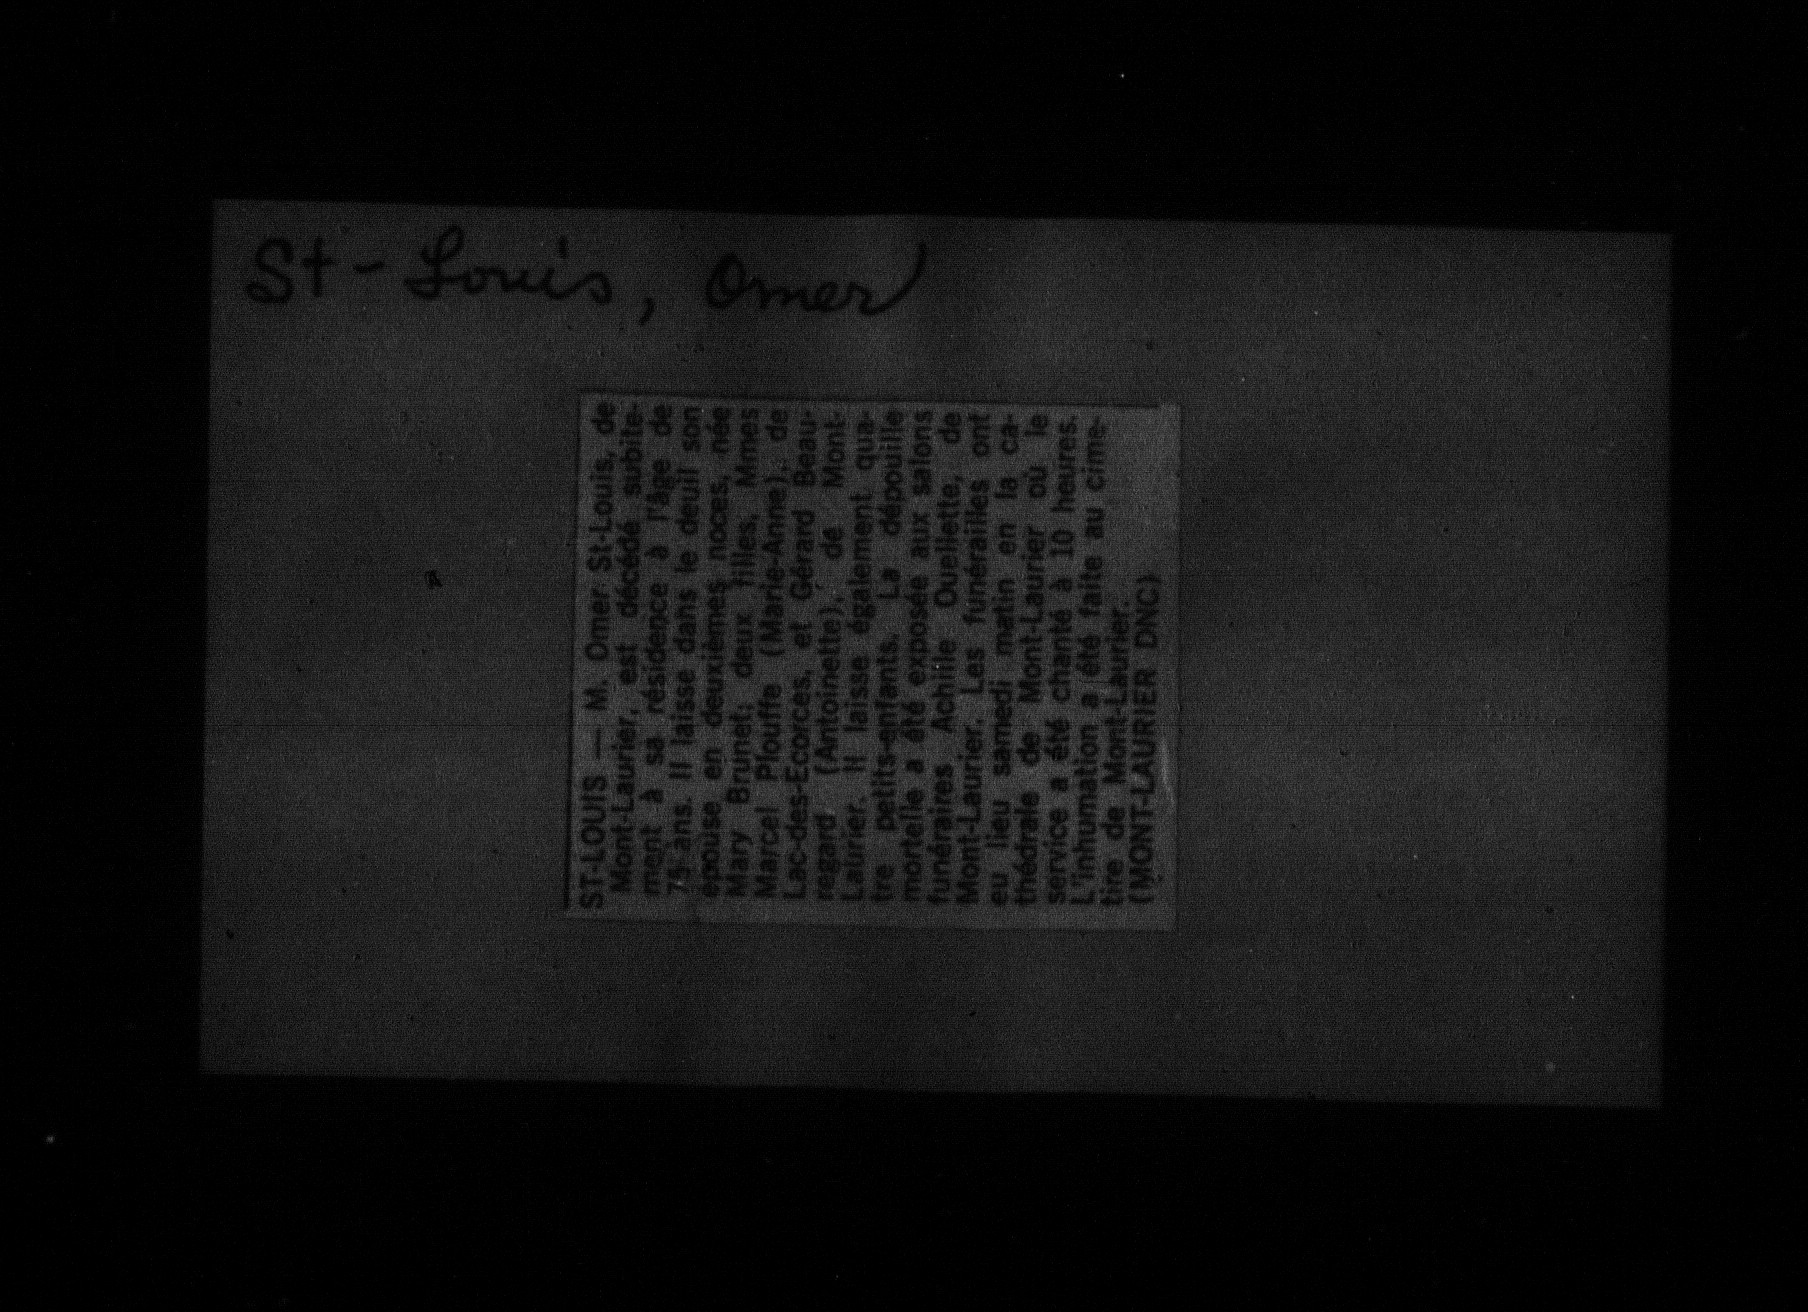 St-Louis, Omer
ST-LOUIS — M. Omer St-Louis, de
Mont-Laurier, est décédé subite-
ment à sa résidence à l'âge de
75 ans. Il laisse dans le deuil son
épouse en deuxièmes noces, née
Mary Brunet; deux filles, Mmes
Marcel Plouffe (Marie-Anne), de
Lac-des-Ecorces, et Gérard Beau-
regard (Antoinette), de Mont-
Laurier. Il laisse également qua-
tre petits-enfants. La dépouille
mortelle a été exposée aux salons
funéraires Achille Ouellette, de
Mont-Laurier. Les funérailles ont
eu lieu samedi matin en la ca-
thédrale de Mont-Laurier où le
service a été chanté à 10 heures.
L'inhumation a été faite au cime-
tire de Mont-Laurier.
(MONT-LAURIER DNC)